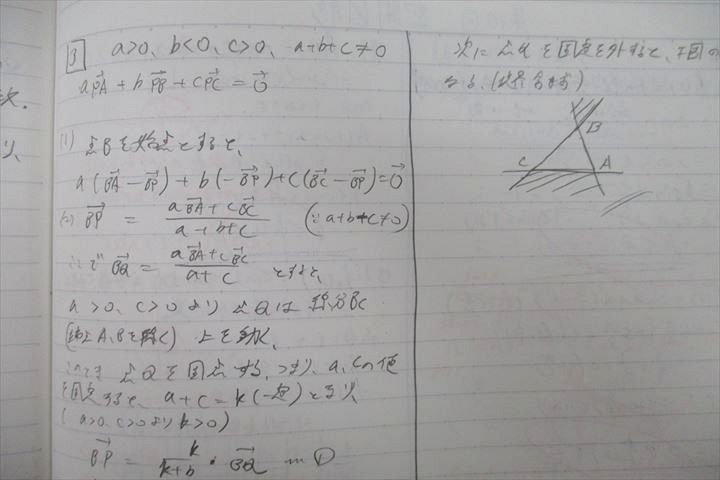 3 a>0, b<0, c>0, a+b+c≠0
aPA→ + bPB→ + cPC→ = 0→
(1) 点Bを始点とすると、
a(BA→ - BP→) + b(-BP→) + c(BC→ - BP→) = 0→
BP→ = (aBA→ + cBC→)/(a+b+c) (∵ a+b+c≠0)
ここで BQ→ = (aBA→ + cBC→)/(a+c) とすると、
a>0, c>0 より 点Qは 線分BC
(端点A、Bを除く) 上を動く。
このとき 点Qを固定する。つまり、a, cの値
を固定すると、 a+c = k (一定) となり、
(a>0, c>0 より k>0)
BP→ = k/(k+b) ・ BQ→ …①
次に 点Qを固定を外すと、下図の
なる。
B
C A
次.
り、